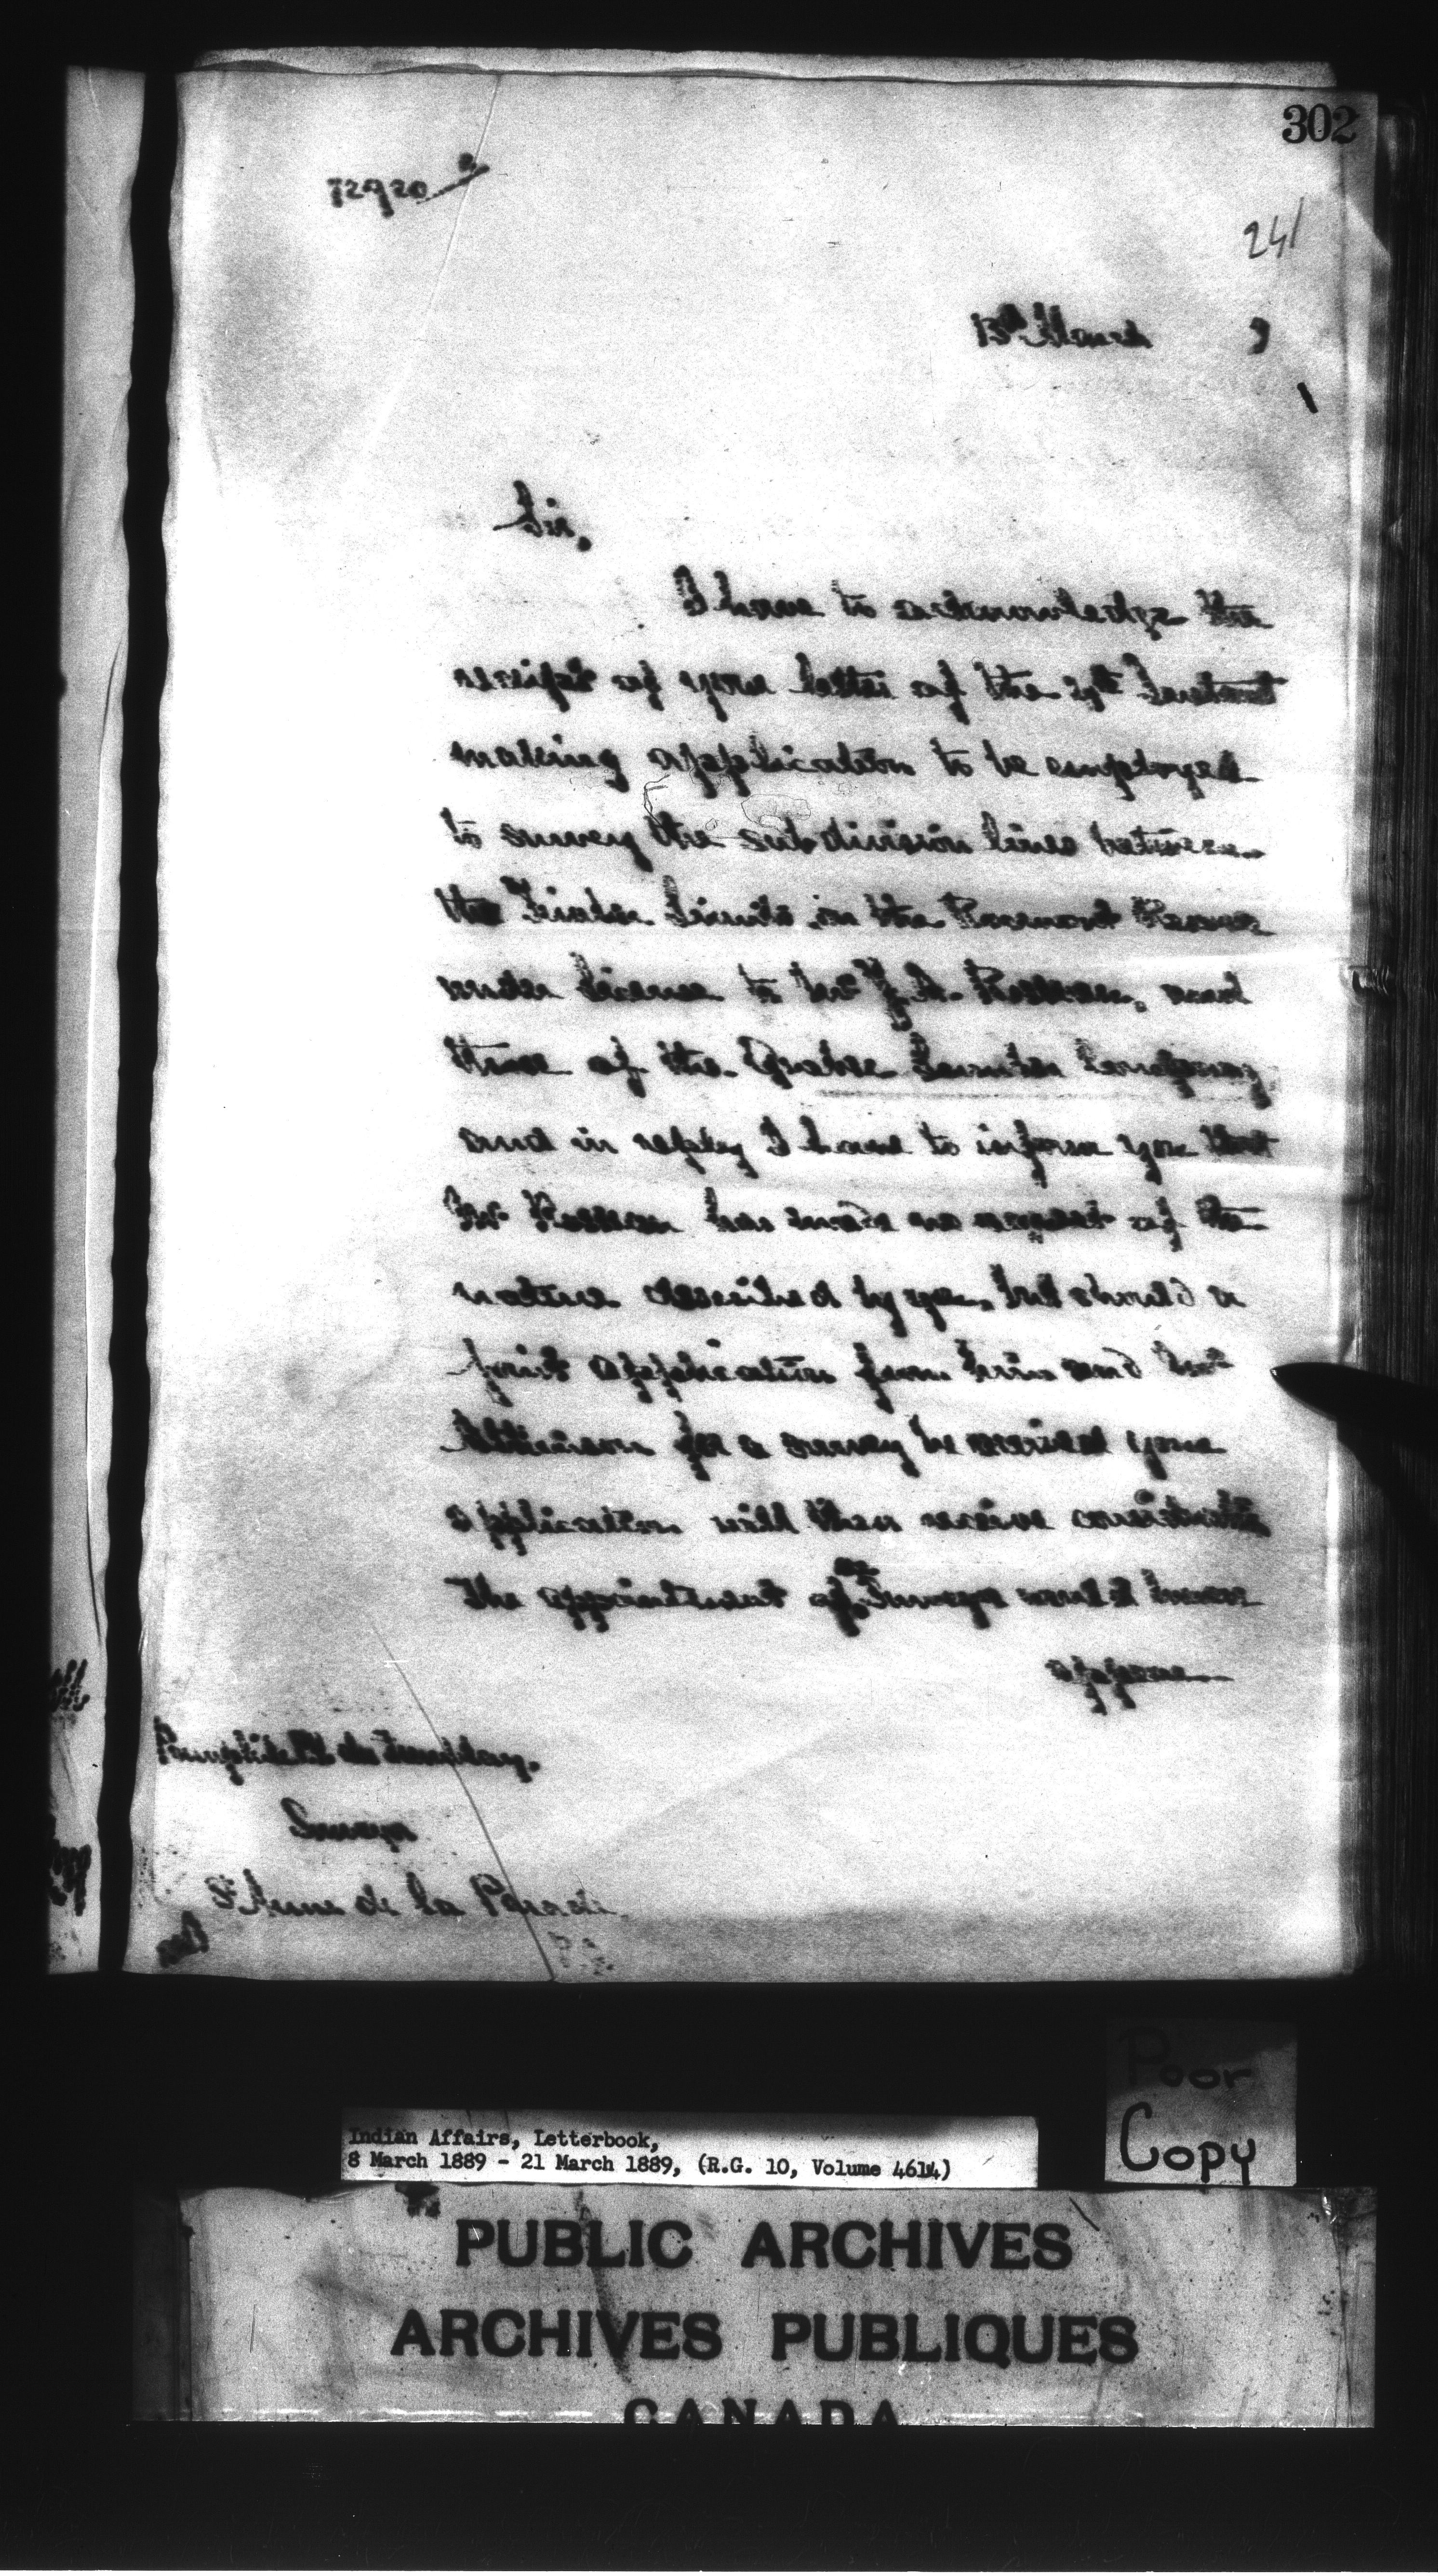 302
72920
241
13th March 9
Sir,
I have to acknowledge the
receipt of your letter of the Instant
making application to be employed
to survey the subdivision lines between
the Timber Limits in the Reserve
under license to Mr J. A. and
those of the Quebec Lumber Company
and in reply I have to inform you that
Mr has made no request of the
nature described by you, but should a
joint application from him and
for a survey be received your
application will then receive consideration
The appointment of Surveyor would however
appear
de Tremblay.
Surveyor
St Anne de la Perade
P.Q.
Poor
Copy
Indian Affairs, Letterbook,
8 March 1889 - 21 March 1889, (R.G. 10, Volume 4614)
PUBLIC ARCHIVES
ARCHIVES PUBLIQUES
CANADA